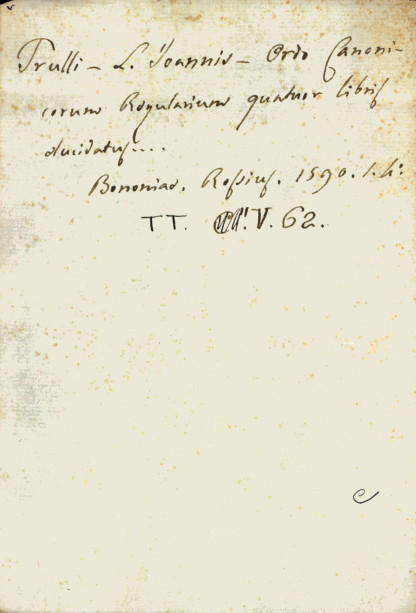 Trulli – L. Joannis – Ordo Canoni-
corum Regularium quatuor libris
elucidatus....
Bononiae, Rossius. 1590. 1. 4:
TT. V. 62.